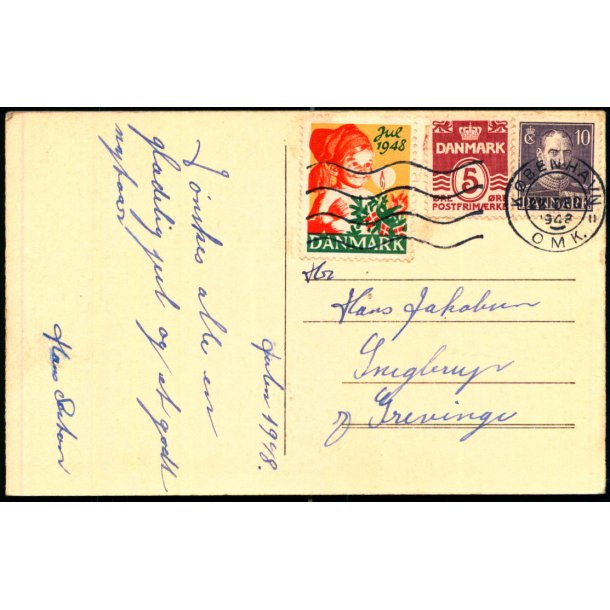 I ønskes alle en
glædelig jul og et godt
nytaar
Julen 1948.
Hans
Jul
1948
DANMARK
DANMARK
5
ØRE ØRE
POSTFRIMÆRKE
10
KØBENHAVN
1948
OMK.
Hr
Hans Jakobsen
Svejgbrup
pr Grevinge